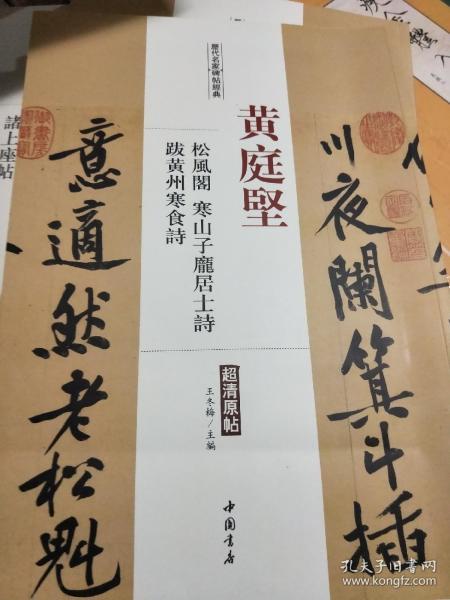 歷代名家碑帖經典
黄庭堅
松風閣 寒山子龐居士詩
跋黄州寒食詩
超清原帖
王冬梅/主編
中国書店
川夜闌箕斗插
意適然老松魁
諸上座帖
孔夫子旧书网
www.kongfz.com